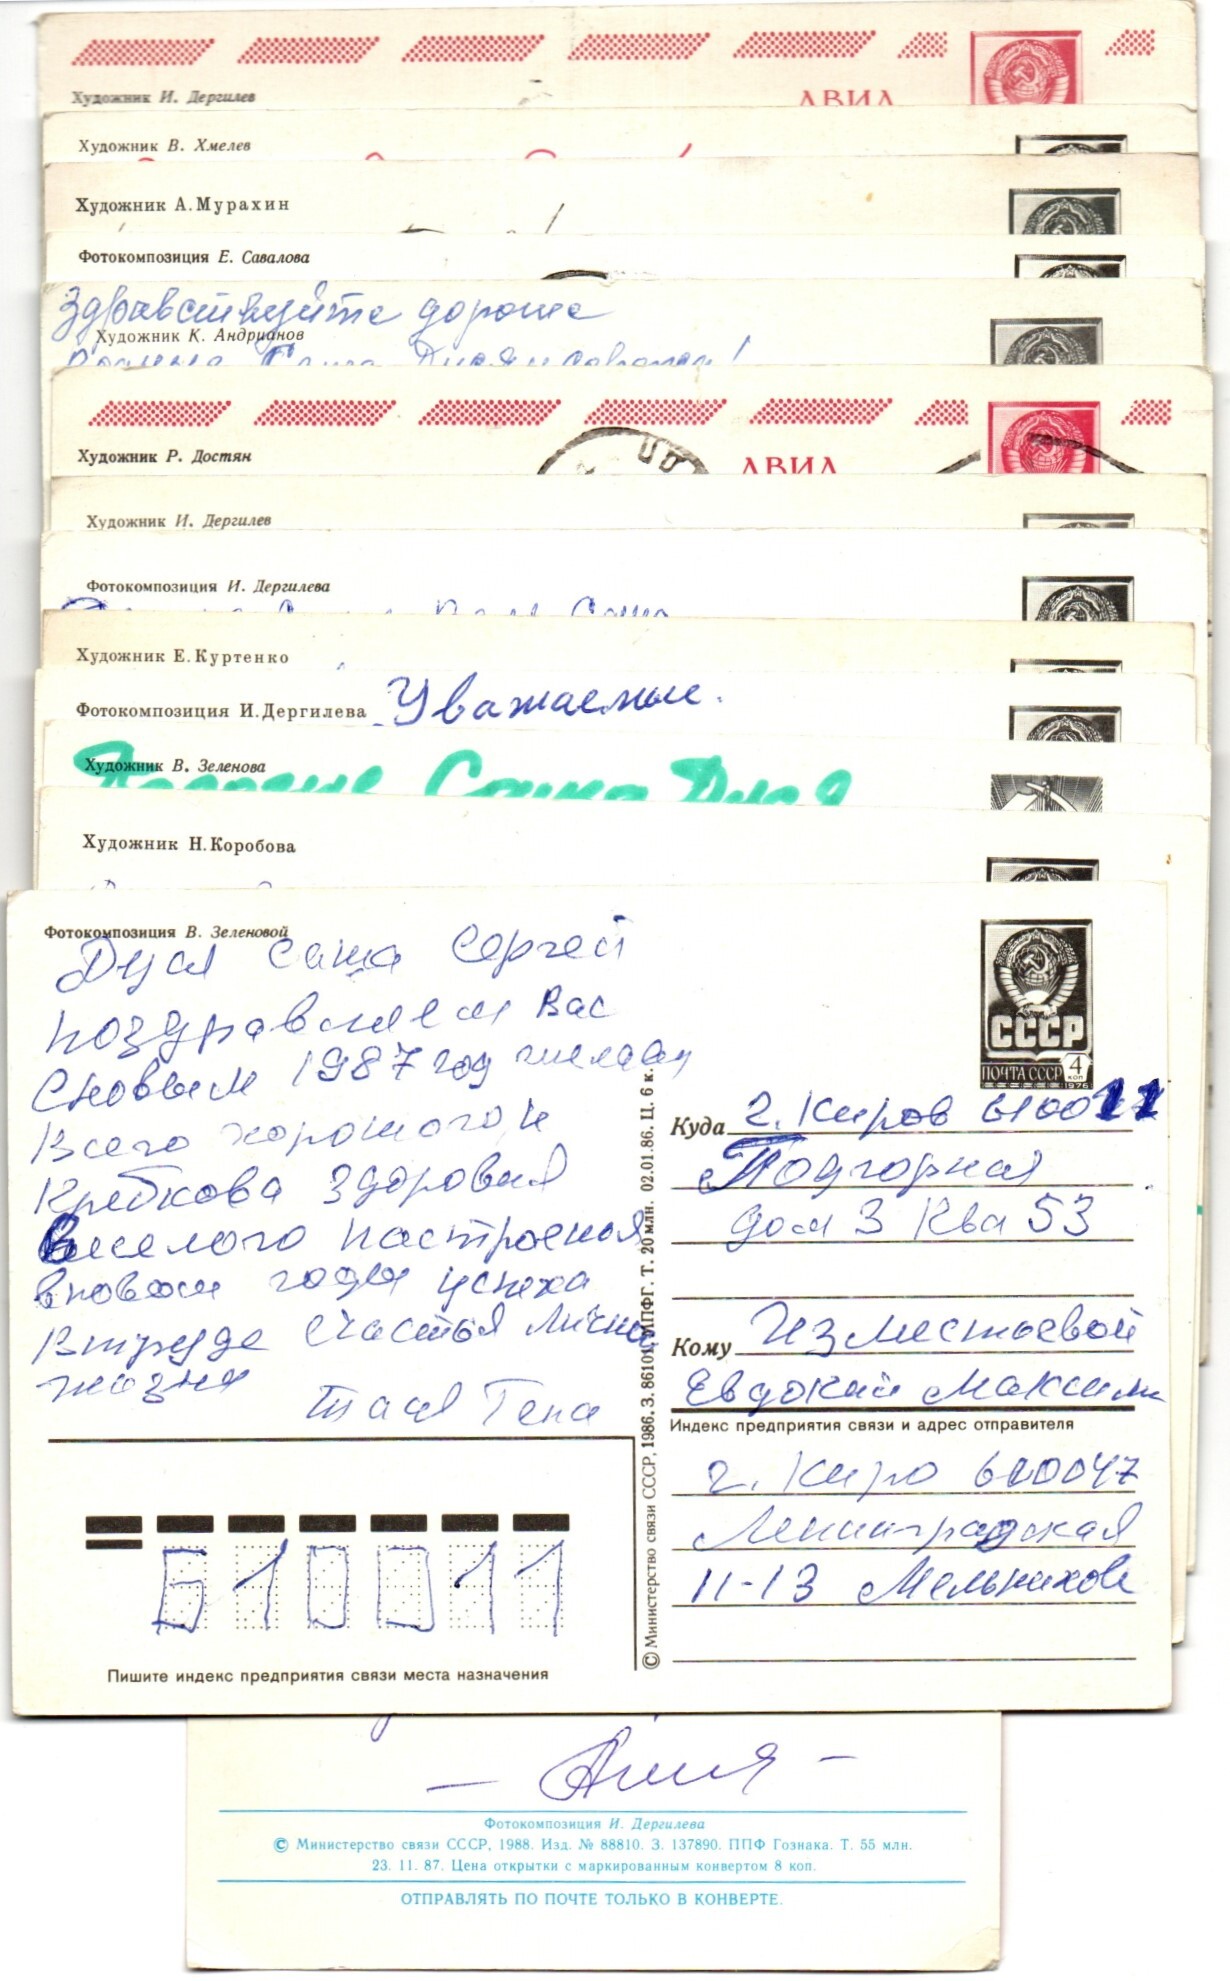 Художник И. Дергилев
АВИА
Художник В. Хмелев
Художник А. Мурахин
Фотокомпозиция Е. Савалова
Здравствуйте дорогие
Художник К. Андрианов
Художник Р. Достян
АВИА
Художник И. Дергилев
Фотокомпозиция И. Дергилева
Художник Е. Куртенко
Фотокомпозиция И. Дергилева
Уважаемые
Художник В. Зеленова
Дорогие Саша Дуся
Художник Н. Коробова
Фотокомпозиция В. Зеленовой
Дуся Саша Сергей
поздравляем Вас
Сновым 1987 год желаем
Всего хорошого и
Крепкова Здоровья
Веселого Настроения
вновом году успеха
Втруде Счастья Лично
жизни
Тася Гена
СССР
ПОЧТА СССР 4 коп
1976
Куда г. Киров 610011
Подгорная
дом 3 Ква 53
Кому Изместьевой
Евдокии Максим
Индекс предприятия связи и адрес отправителя
г. Киро 610047
Ленинградская
11-13 Мельникове
© Министерство связи СССР, 1986. З. 86101. МПФГ. Т. 20 млн. 02.01.86. Ц. 6 к.
610011
Пишите индекс предприятия связи места назначения
Фотокомпозиция И. Дергилева
© Министерство связи СССР, 1988. Изд. № 88810. З. 137890. ППФ Гознака. Т. 55 млн.
23. 11. 87. Цена открытки с маркированным конвертом 8 коп.
ОТПРАВЛЯТЬ ПО ПОЧТЕ ТОЛЬКО В КОНВЕРТЕ.